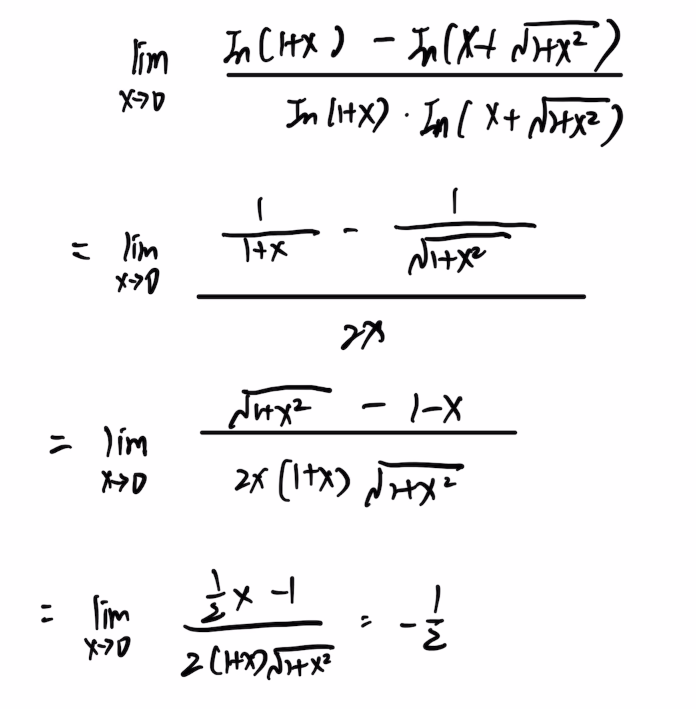 lim x→0 (ln(1+x) - ln(x+√(1+x²))) / (ln(1+x) · ln(x+√(1+x²)))
= lim x→0 (1/(1+x) - 1/√(1+x²)) / (2x)
= lim x→0 (√(1+x²) - 1-x) / (2x(1+x)√(1+x²))
= lim x→0 (½x - 1) / (2(1+x)√(1+x²)) = -½